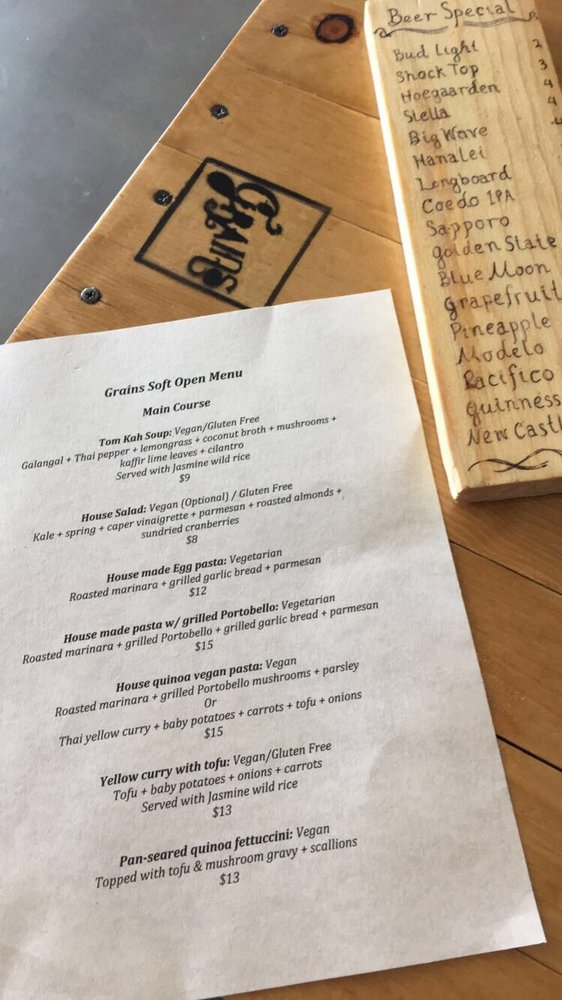 Grains
Grains Soft Open Menu
Main Course
Tom Kah Soup: Vegan/Gluten Free
Galangal + Thai pepper + lemongrass + coconut broth + mushrooms +
kaffir lime leaves + cilantro
Served with Jasmine wild rice
$9
House Salad: Vegan (Optional) / Gluten Free
Kale + spring + caper vinaigrette + parmesan + roasted almonds +
sundried cranberries
$8
House made Egg pasta: Vegetarian
Roasted marinara + grilled garlic bread + parmesan
$12
House made pasta w/ grilled Portobello: Vegetarian
Roasted marinara + grilled Portobello + grilled garlic bread + parmesan
$15
House quinoa vegan pasta: Vegan
Roasted marinara + grilled Portobello mushrooms + parsley
Or
Thai yellow curry + baby potatoes + carrots + tofu + onions
$15
Yellow curry with tofu: Vegan/Gluten Free
Tofu + baby potatoes + onions + carrots
Served with Jasmine wild rice
$13
Pan-seared quinoa fettuccini: Vegan
Topped with tofu & mushroom gravy + scallions
$13
Beer Special
Bud Light 2
Shock Top 3
Hoegaarden 4
Stella 4
Big Wave
Hanalei
Longboard
Coedo IPA
Sapporo
Golden State
Blue Moon
Grapefruit
Pineapple
Modelo
Pacifico
Guinness
New Castl